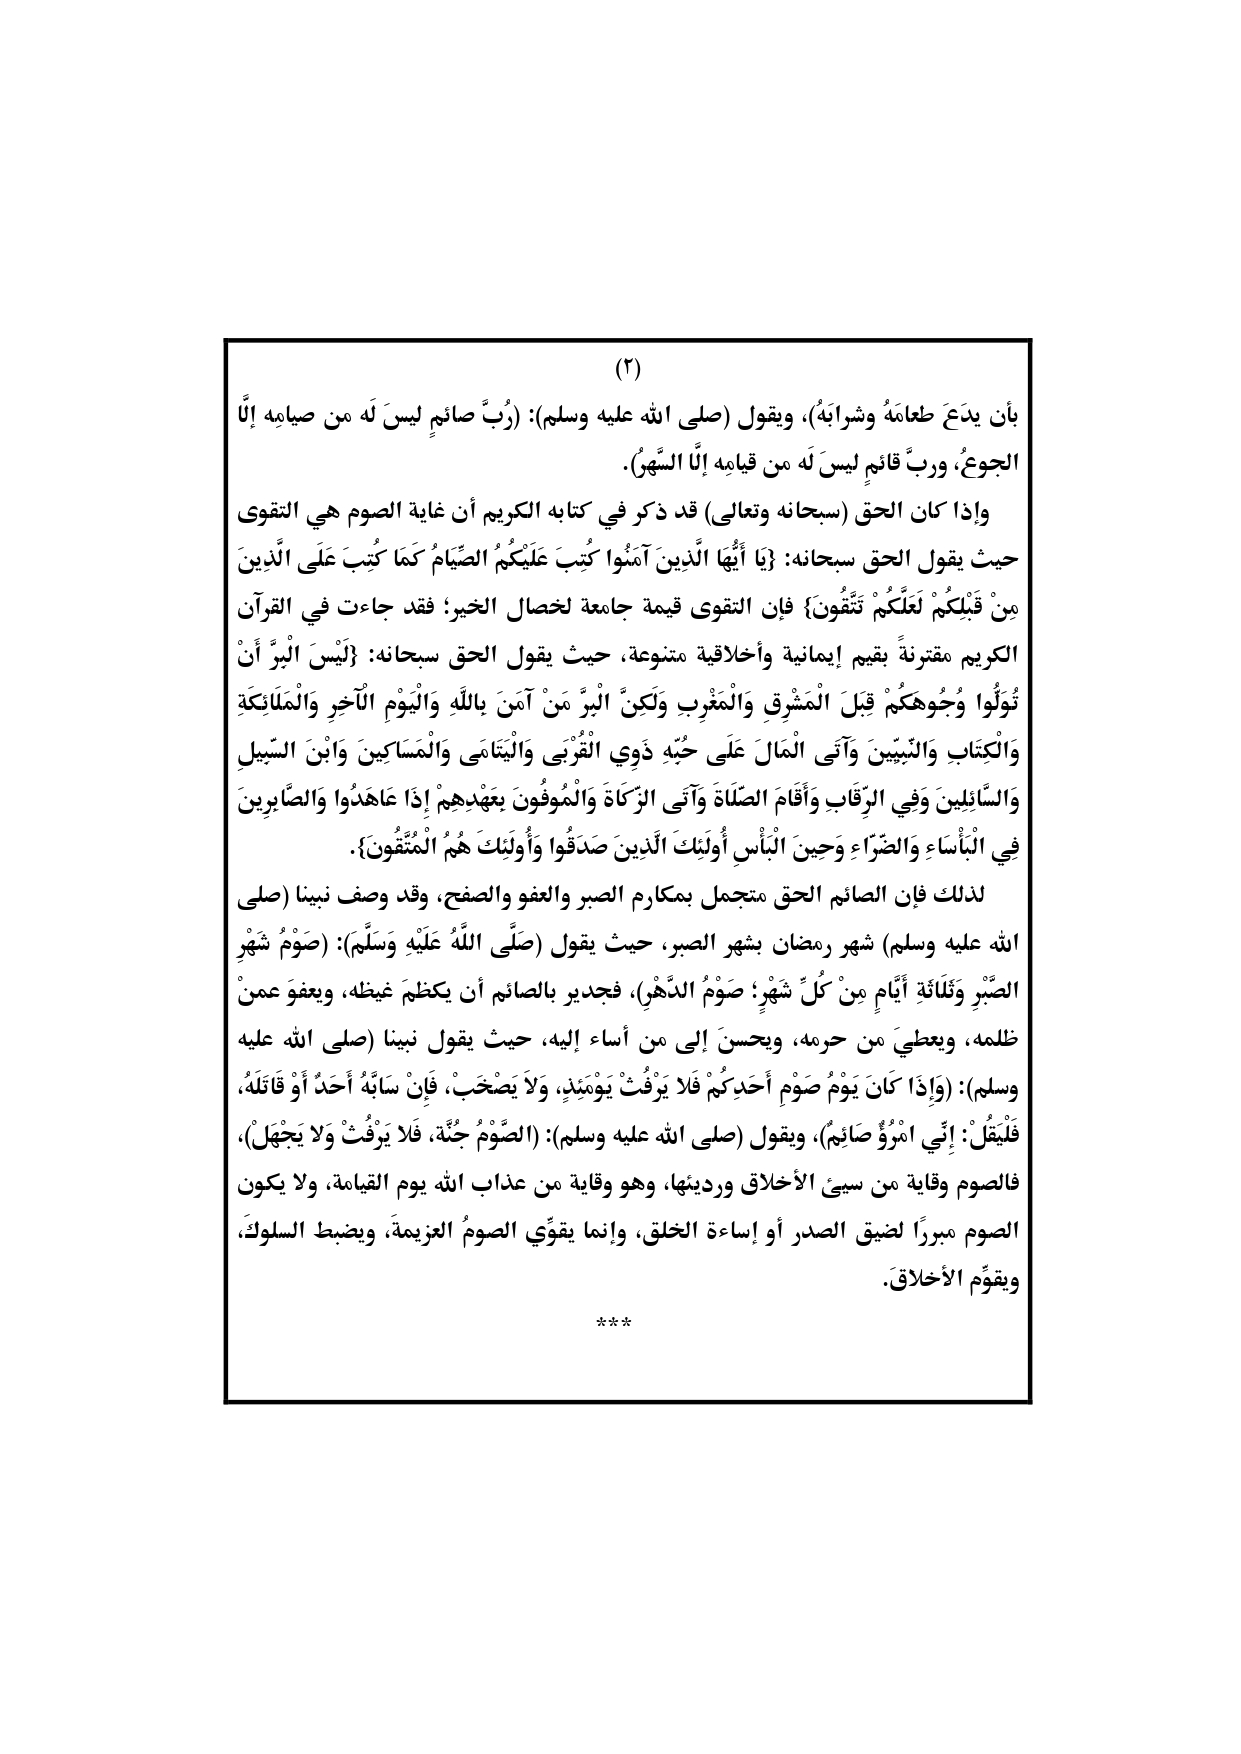 (٢)
بأن يدَعَ طعامَهُ وشرابَهُ)، ويقول (صلى الله عليه وسلم): (رُبَّ صائمٍ ليسَ لَه من صيامِه إلَّا
الجوعُ، وربَّ قائمٍ ليسَ لَه من قيامِه إلَّا السَّهرُ).
وإذا كان الحق (سبحانه وتعالى) قد ذكر في كتابه الكريم أن غاية الصوم هي التقوى
حيث يقول الحق سبحانه: {يَا أَيُّهَا الَّذِينَ آمَنُوا كُتِبَ عَلَيْكُمُ الصِّيَامُ كَمَا كُتِبَ عَلَى الَّذِينَ
مِنْ قَبْلِكُمْ لَعَلَّكُمْ تَتَّقُونَ} فإن التقوى قيمة جامعة لخصال الخير؛ فقد جاءت في القرآن
الكريم مقترنةً بقيم إيمانية وأخلاقية متنوعة، حيث يقول الحق سبحانه: {لَيْسَ الْبِرَّ أَنْ
تُوَلُّوا وُجُوهَكُمْ قِبَلَ الْمَشْرِقِ وَالْمَغْرِبِ وَلَكِنَّ الْبِرَّ مَنْ آمَنَ بِاللَّهِ وَالْيَوْمِ الْآخِرِ وَالْمَلَائِكَةِ
وَالْكِتَابِ وَالنَّبِيِّينَ وَآتَى الْمَالَ عَلَى حُبِّهِ ذَوِي الْقُرْبَى وَالْيَتَامَى وَالْمَسَاكِينَ وَابْنَ السَّبِيلِ
وَالسَّائِلِينَ وَفِي الرِّقَابِ وَأَقَامَ الصَّلَاةَ وَآتَى الزَّكَاةَ وَالْمُوفُونَ بِعَهْدِهِمْ إِذَا عَاهَدُوا وَالصَّابِرِينَ
فِي الْبَأْسَاءِ وَالضَّرَّاءِ وَحِينَ الْبَأْسِ أُولَئِكَ الَّذِينَ صَدَقُوا وَأُولَئِكَ هُمُ الْمُتَّقُونَ}.
لذلك فإن الصائم الحق متجمل بمكارم الصبر والعفو والصفح، وقد وصف نبينا (صلى
الله عليه وسلم) شهر رمضان بشهر الصبر، حيث يقول (صَلَّى اللَّهُ عَلَيْهِ وَسَلَّمَ): (صَوْمُ شَهْرِ
الصَّبْرِ وَثَلَاثَةِ أَيَّامٍ مِنْ كُلِّ شَهْرٍ؛ صَوْمُ الدَّهْرِ)، فجدير بالصائم أن يكظمَ غيظه، ويعفوَ عمنْ
ظلمه، ويعطيَ من حرمه، ويحسنَ إلى من أساء إليه، حيث يقول نبينا (صلى الله عليه
وسلم): (وَإِذَا كَانَ يَوْمُ صَوْمِ أَحَدِكُمْ فَلا يَرْفُثْ يَوْمَئِذٍ، وَلاَ يَصْخَبْ، فَإِنْ سَابَّهُ أَحَدٌ أَوْ قَاتَلَهُ،
فَلْيَقُلْ: إِنِّي امْرُؤٌ صَائِمٌ)، ويقول (صلى الله عليه وسلم): (الصَّوْمُ جُنَّة، فَلا يَرْفُثْ وَلا يَجْهَلْ)،
فالصوم وقاية من سيئ الأخلاق ورديئها، وهو وقاية من عذاب الله يوم القيامة، ولا يكون
الصوم مبررًا لضيق الصدر أو إساءة الخلق، وإنما يقوِّي الصومُ العزيمةَ، ويضبط السلوكَ،
ويقوِّم الأخلاقَ.
***